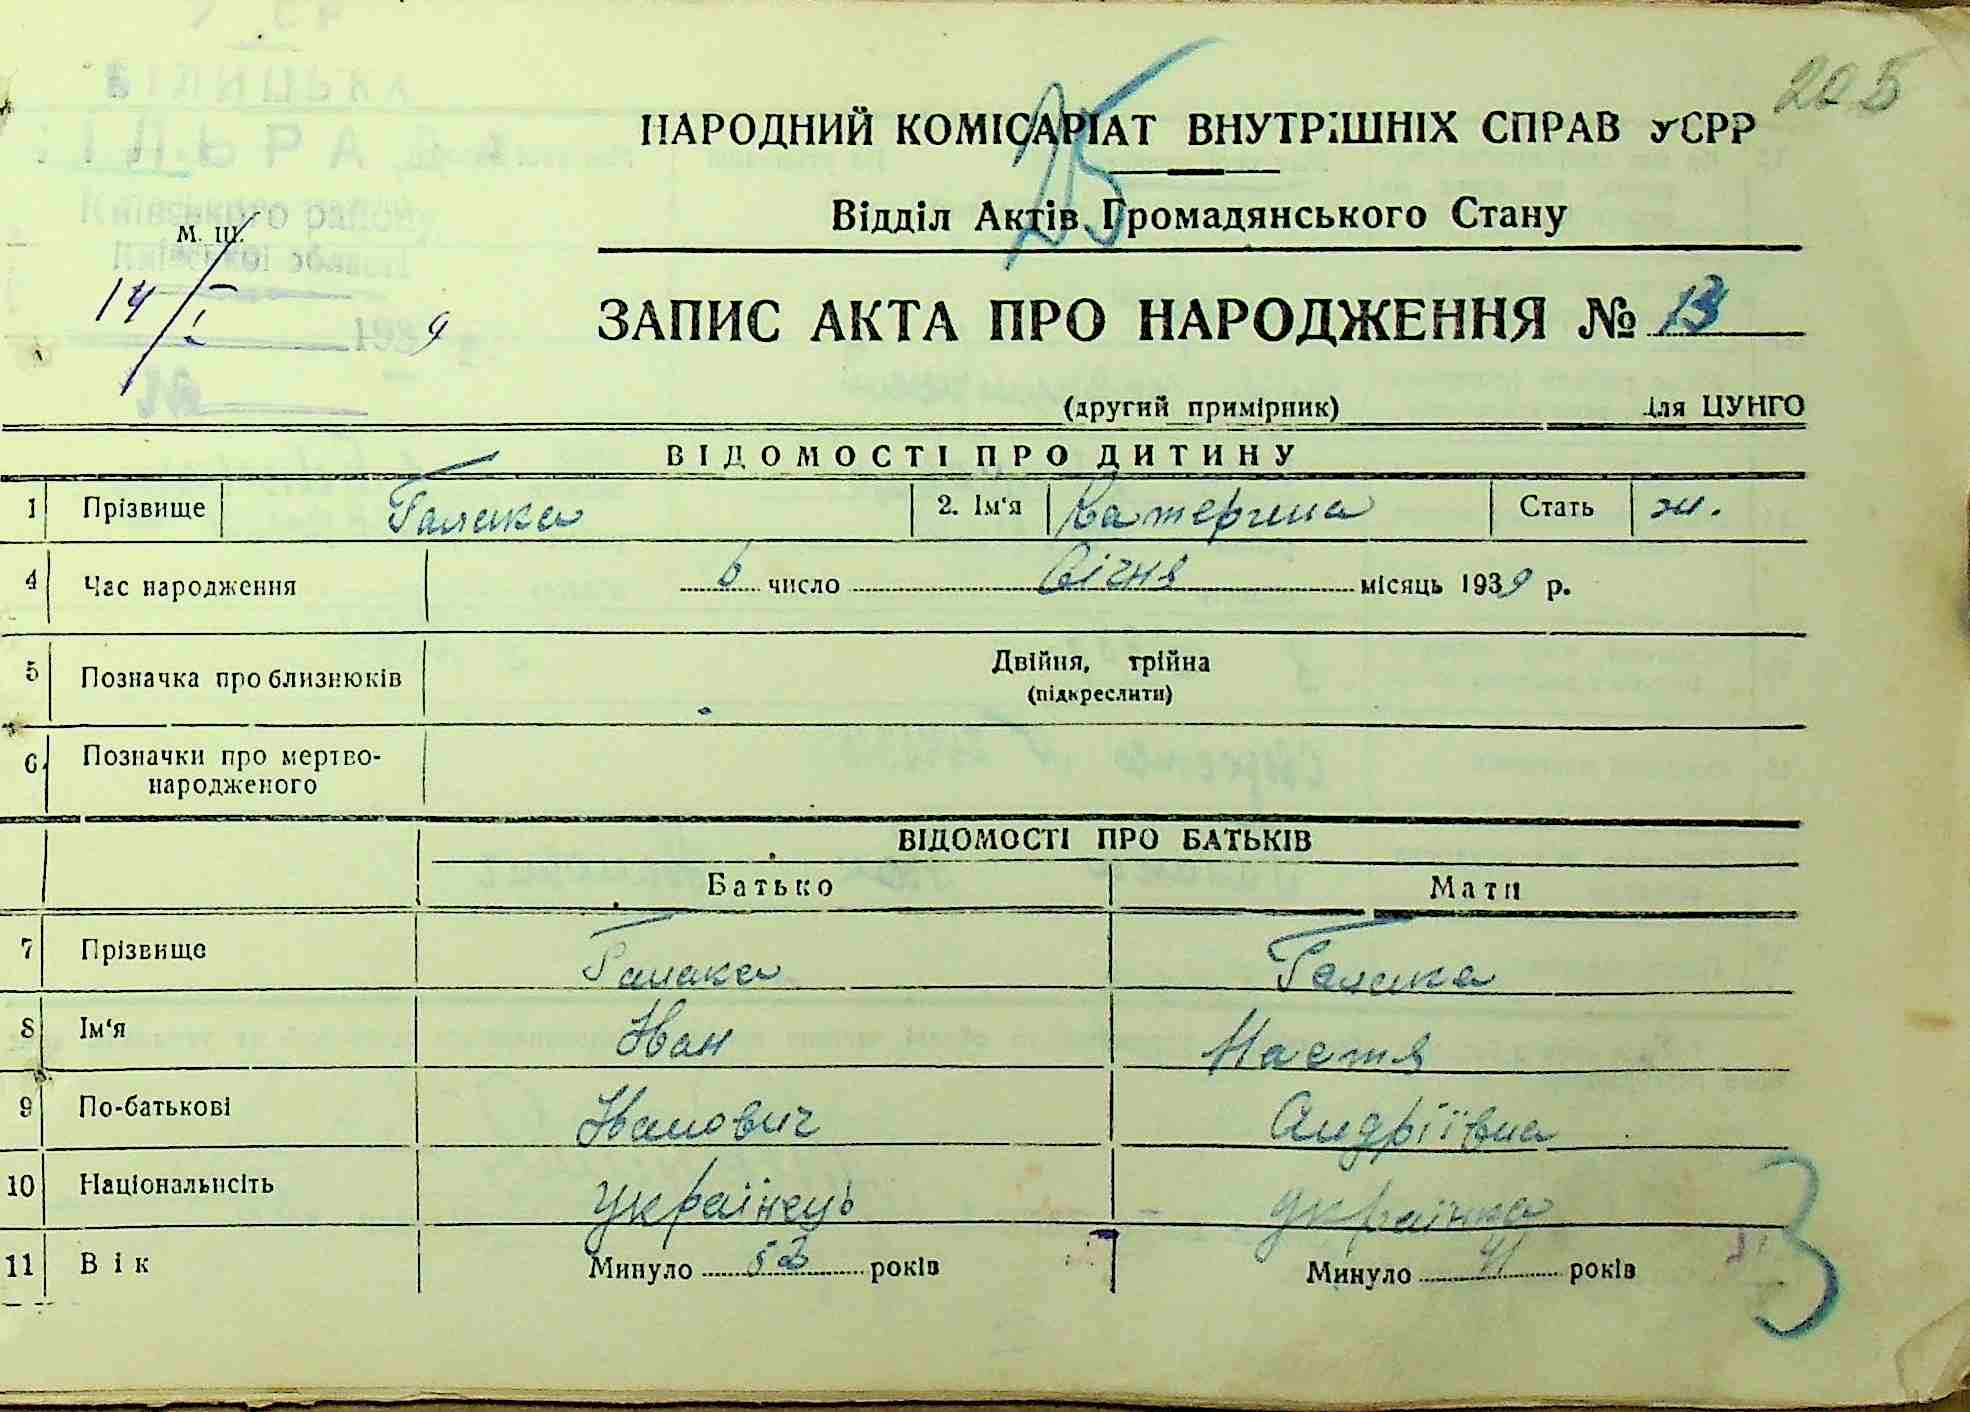 205
25
НАРОДНИЙ КОМІСАРІАТ ВНУТРІШНІХ СПРАВ УСРР
Відділ Актів Громадянського Стану
М. Ш.
14/I 1939
ЗАПИС АКТА ПРО НАРОДЖЕННЯ № 13
(другий примірник) Для ЦУНГО
ВІДОМОСТІ ПРО ДИТИНУ
1 Прізвище Галака 2. Ім'я Катерина Стать ж.
4 Час народження 6 число Січня місяць 1939 р.
5 Позначка про близнюків Двійня, трійна
(підкреслити)
6. Позначки про мертво-
народженого
ВІДОМОСТІ ПРО БАТЬКІВ
Батько Мати
7 Прізвище Галака Галака
8 Ім'я Іван Настя
9 По-батькові Іванович Андріївна
10 Національність українець українка
11 Вік Минуло 53 років Минуло 41 років
3